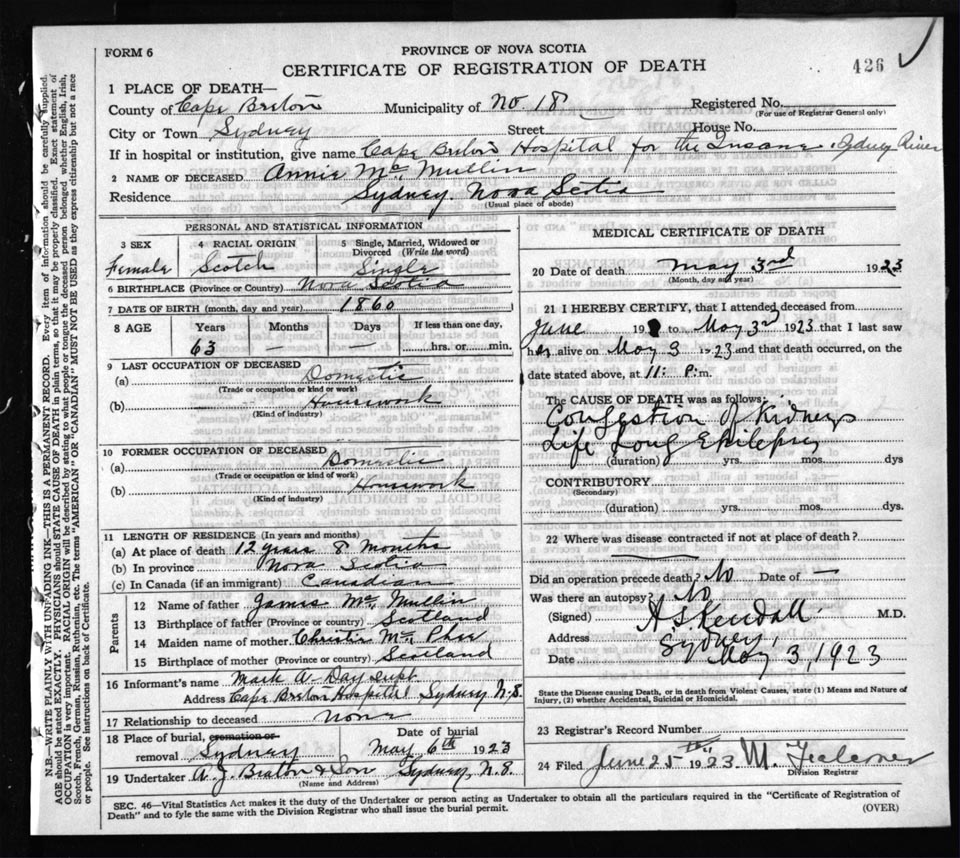 FORM 6
PROVINCE OF NOVA SCOTIA
CERTIFICATE OF REGISTRATION OF DEATH
426
1 PLACE OF DEATH—
County of Cape Breton Municipality of No. 18 Registered No.
(For use of Registrar General only)
City or Town Sydney Street House No.
If in hospital or institution, give name Cape Breton Hospital for the Insane, Sydney River
2 NAME OF DECEASED Annie Mc Mullin
Residence Sydney Nova Scotia
(Usual place of abode)
PERSONAL AND STATISTICAL INFORMATION
3 SEX Female
4 RACIAL ORIGIN Scotch
5 Single, Married, Widowed or Divorced (Write the word) Single
6 BIRTHPLACE (Province or Country) Nova Scotia
7 DATE OF BIRTH (month, day and year) 1860
8 AGE Years Months Days If less than one day,
63 — — hrs. or min.
9 LAST OCCUPATION OF DECEASED
(a) Domestic
(Trade or occupation or kind of work)
(b) Housework
(Kind of industry)
10 FORMER OCCUPATION OF DECEASED
(a) Domestic
(Trade or occupation or kind of work)
(b) Housework
(Kind of industry)
11 LENGTH OF RESIDENCE (In years and months)
(a) At place of death 12 years 8 months
(b) In province Nova Scotia
(c) In Canada (if an immigrant) Canadian
Parents
12 Name of father James Mc Mullin
13 Birthplace of father (Province or country) Scotland
14 Maiden name of mother Christie Mc Phee
15 Birthplace of mother (Province or country) Scotland
16 Informant's name Mark A. Day Supt.
Address Cape Breton Hospital Sydney N.S.
17 Relationship to deceased None
18 Place of burial, cremation or removal Sydney
Date of burial May 6th 1923
19 Undertaker A. J. Beaton & Son Sydney, N.S.
(Name and Address)
MEDICAL CERTIFICATE OF DEATH
20 Date of death May 3rd 1923
(Month, day and year)
21 I HEREBY CERTIFY, that I attended deceased from
June 19 to May 3rd 1923 that I last saw
her alive on May 3 1923 and that death occurred, on the
date stated above, at 11: P.m.
The CAUSE OF DEATH was as follows:
Congestion of Kidneys
Life Long Epilepsy
(duration) yrs. mos. dys
CONTRIBUTORY
(Secondary)
(duration) yrs. mos. dys.
22 Where was disease contracted if not at place of death?
Did an operation precede death? No Date of —
Was there an autopsy? No
(Signed) A S Kendall M.D.
Address Sydney,
Date May 3, 1923
State the Disease causing Death, or in death from Violent Causes, state (1) Means and Nature of
Injury, (2) whether Accidental, Suicidal or Homicidal.
23 Registrar's Record Number
24 Filed June 25th 1923 M. Falconer
Division Registrar
SEC. 46—Vital Statistics Act makes it the duty of the Undertaker or person acting as Undertaker to obtain all the particulars required in the "Certificate of Registration of
Death" and to fyle the same with the Division Registrar who shall issue the burial permit.
(OVER)
N.B.—WRITE PLAINLY WITH UNFADING INK—THIS IS A PERMANENT RECORD. Every item of information should be carefully supplied.
AGE should be stated EXACTLY. PHYSICIANS should STATE CAUSE OF DEATH in plain terms, so that it may be properly classified. Exact statement of
OCCUPATION is very important. RACIAL ORIGIN will be described by stating to what people or tongue the deceased person belonged, whether English, Irish,
Scotch, French, German, Russian, Ruthenian, etc. The terms "AMERICAN" OR "CANADIAN" MUST NOT BE USED as they express citizenship but not a race
or people. See instructions on back of Certificate.